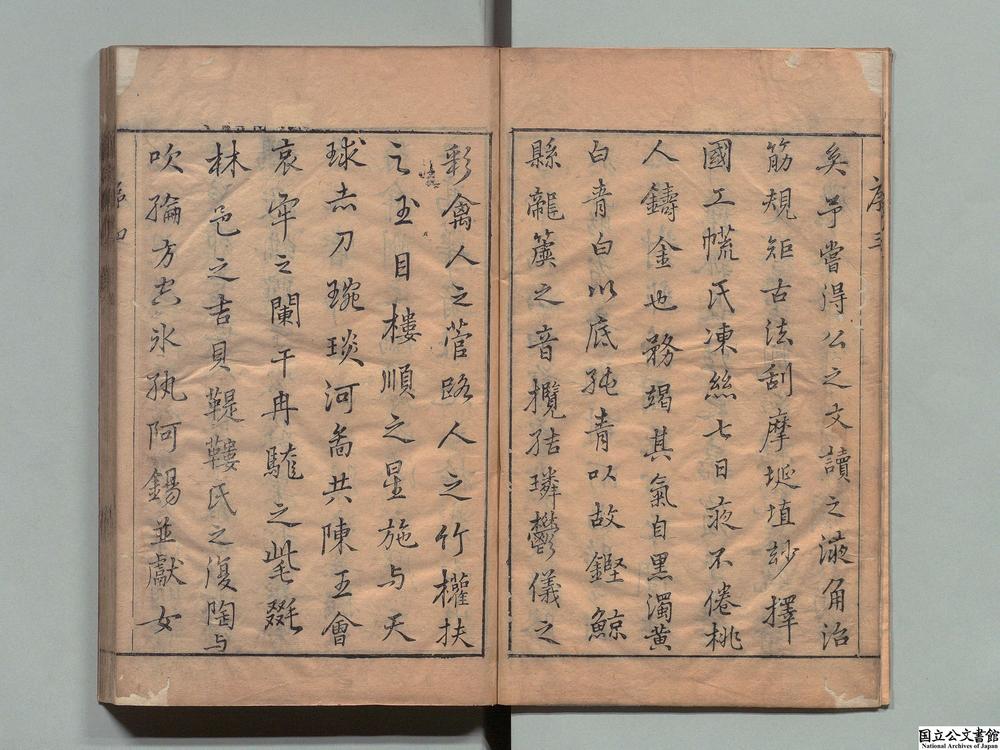 序三
矣予嘗得公之文讀之液角治
筋規矩古法刮摩埏埴紗擇
國工㡛氏湅絲七日夜不倦桃
人鑄金也務竭其氣自黑濁黃
白青白以底純青以故鏗鯨
縣龍簴之音攬結璘鬱儀之
彩禽人之菅路人之竹權扶
之玉目樓順之星施与天
球赤刀琬琰河啚共陳王會
哀牢之闌干冉駹之㲚毲
林邑之吉貝鞮鞻氏之復陶与
吹綸方空氷紈阿錫並獻女
序四
国立公文書館
National Archives of Japan